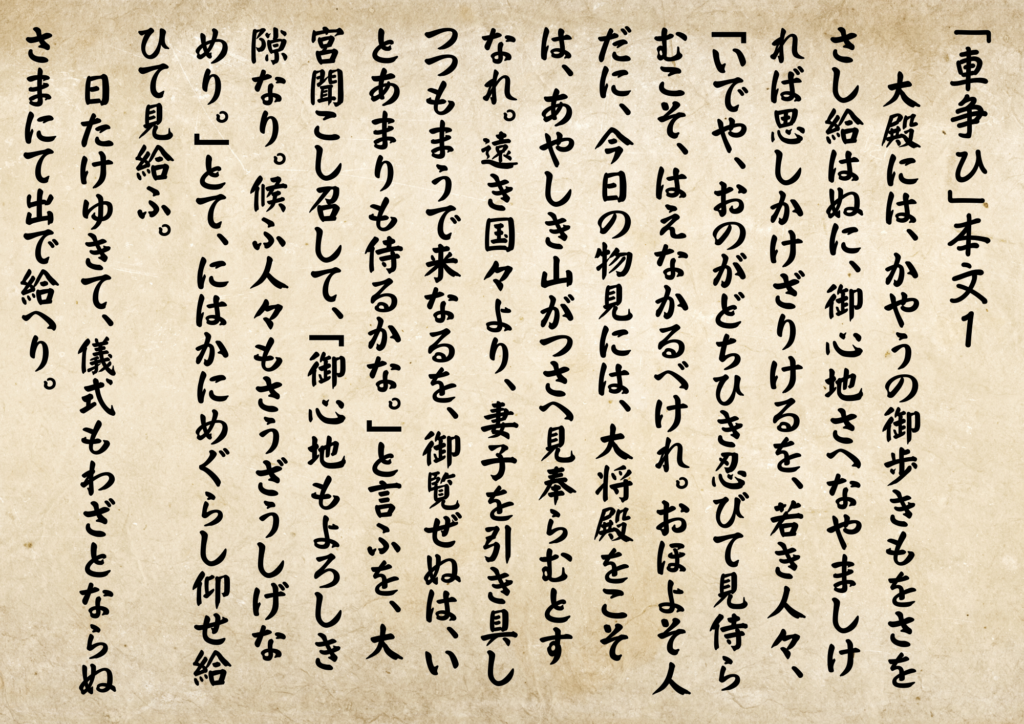 「車争ひ」本文1
大殿には、かやうの御歩きもをさを
さし給はぬに、御心地さへなやましけ
れば思しかけざりけるを、若き人々、
「いでや、おのがどちひき忍びて見侍ら
むこそ、はえなかるべけれ。おほよそ人
だに、今日の物見には、大将殿をこそ
は、あやしき山がつさへ見奉らむとす
なれ。遠き国々より、妻子を引き具し
つつもまうで来なるを、御覧ぜぬは、い
とあまりも侍るかな。」と言ふを、大
宮聞こし召して、「御心地もよろしき
隙なり。候ふ人々もさうざうしげな
めり。」とて、にはかにめぐらし仰せ給
ひて見給ふ。
日たけゆきて、儀式もわざとならぬ
さまにて出で給へり。